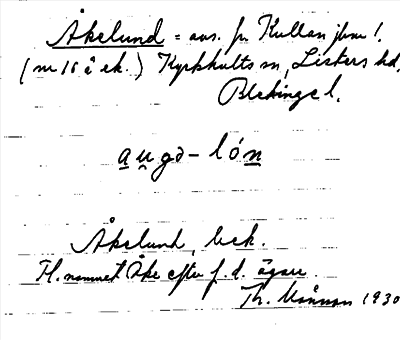 Åkelund = avs. fr. Kullan jbnr 1.
(nr 15 å ek.) Kyrkhults sn, Listers hd,
Blekinge l.
au̯gə-lón
Åkelund, bek.
Fl. namnet Åke efter f. d. ägare.
Th. Månsson 1930